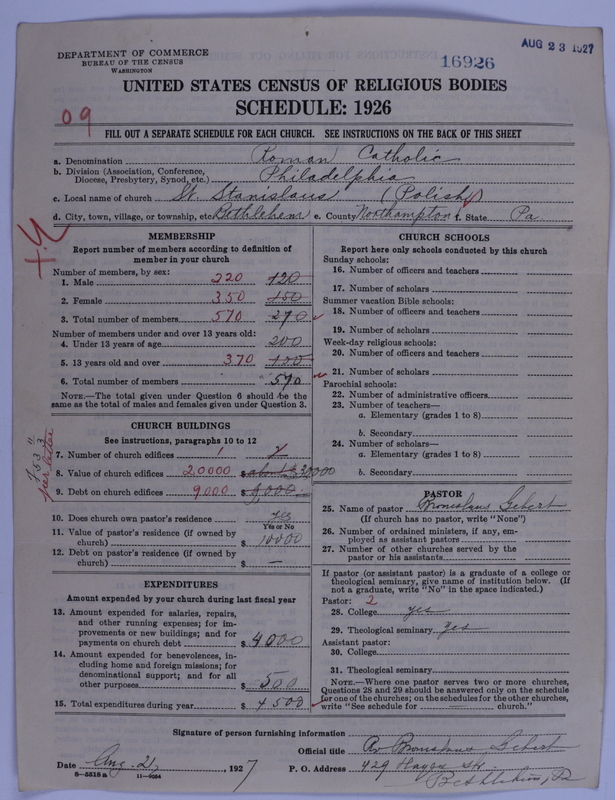 DEPARTMENT OF COMMERCE
BUREAU OF THE CENSUS
WASHINGTON
16926
AUG 23 1927
UNITED STATES CENSUS OF RELIGIOUS BODIES
SCHEDULE: 1926
09
FILL OUT A SEPARATE SCHEDULE FOR EACH CHURCH. SEE INSTRUCTIONS ON THE BACK OF THIS SHEET
a. Denomination Roman Catholic
b. Division (Association, Conference, Diocese, Presbytery, Synod, etc.) Philadelphia
c. Local name of church St. Stanislaus (Polish)
d. City, town, village, or township, etc. Bethlehem e. County Northampton f. State Pa
MEMBERSHIP
Report number of members according to definition of
member in your church
Number of members, by sex:
1. Male 220 120
2. Female 350 150
3. Total number of members 570 270
Number of members under and over 13 years old:
4. Under 13 years of age 200
5. 13 years old and over 370 100
6. Total number of members 570
NOTE.—The total given under Question 6 should be the
same as the total of males and females given under Question 3.
CHURCH BUILDINGS
See instructions, paragraphs 10 to 12
7. Number of church edifices 1 2
8. Value of church edifices 20000 $ about
9. Debt on church edifices 9000 $ 9,000
per letter
10. Does church own pastor's residence yes
Yes or No
11. Value of pastor's residence (if owned by
church) $ 10000
12. Debt on pastor's residence (if owned by
church) $ —
EXPENDITURES
Amount expended by your church during last fiscal year
13. Amount expended for salaries, repairs,
and other running expenses; for im-
provements or new buildings; and for
payments on church debt $ 4000
14. Amount expended for benevolences, in-
cluding home and foreign missions; for
denominational support; and for all
other purposes $ 500
15. Total expenditures during year $ 4500
CHURCH SCHOOLS
Report here only schools conducted by this church
Sunday schools:
16. Number of officers and teachers
17. Number of scholars
Summer vacation Bible schools:
18. Number of officers and teachers
19. Number of scholars
Week-day religious schools:
20. Number of officers and teachers
21. Number of scholars
Parochial schools:
22. Number of administrative officers
23. Number of teachers—
a. Elementary (grades 1 to 8)
b. Secondary
24. Number of scholars—
a. Elementary (grades 1 to 8)
b. Secondary
PASTOR
25. Name of pastor Bronislaus Gebert
(If church has no pastor, write "None")
26. Number of ordained ministers, if any, em-
ployed as assistant pastors
27. Number of other churches served by the
pastor or his assistants
If pastor (or assistant pastor) is a graduate of a college or
theological seminary, give name of institution below. (If
not a graduate, write "No" in the space indicated.)
Pastor: 2
28. College yes
29. Theological seminary yes
Assistant pastor:
30. College
31. Theological seminary
NOTE.—Where one pastor serves two or more churches,
Questions 28 and 29 should be answered only on the schedule
for one of the churches; on the schedules for the other churches,
write "See schedule for church."
Signature of person furnishing information
Official title Rv Bronislaus Gebert
Date Aug. 21, 1927 P. O. Address 429 St.
8—5518a 11—9084
Bethlehem, Pa